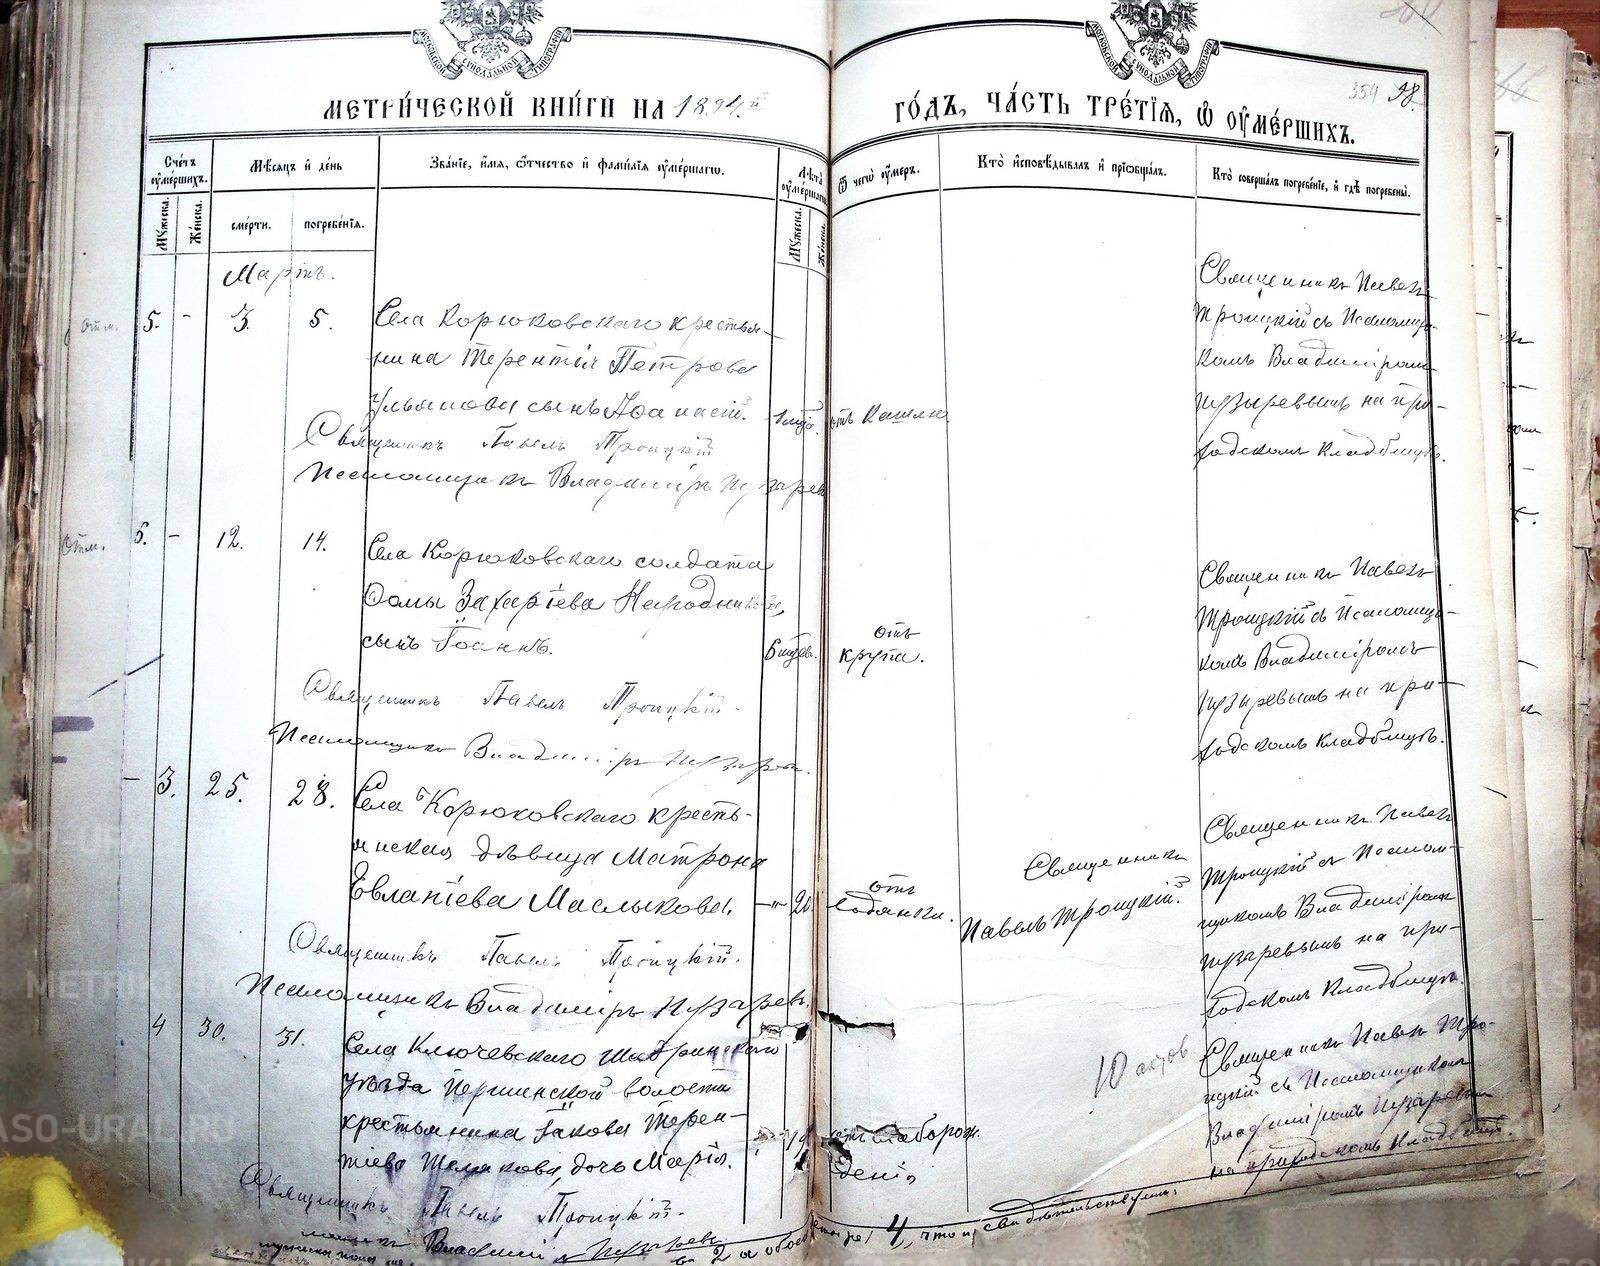 МЕТРИЧЕСКОЙ КНИГИ НА 1894.й ГОДЪ, ЧАСТЬ ТРЕТІЯ, Ѿ ОУМЕРШИХЪ.
МОСКОВСКОЙ СѴНОДАЛЬНОЙ ТИПОГРАФІИ
МОСКОВСКОЙ СѴНОДАЛЬНОЙ ТИПОГРАФІИ
354 98.
Счетъ оумершихъ.
Мужеска.
Женска.
Мѣсяцъ и день
смерти.
погребенія.
Званіе, имя, отчество и фамилія оумершагω.
Лѣта оумершагω
Мужеска.
Женска.
Ѿ чегω оумеръ.
Кто исповѣдывалъ и пріобщалъ.
Кто совершалъ погребеніе, и гдѣ погребены.
Мартъ.
отм. 5. - 3. 5.
Села Корюковскаго крестья-
нина Терентія Петрова
Ульянова сынъ
Священникъ Павелъ Троицкій
Псаломщикъ Владиміръ Пузырев
отъ Кашля
Священникъ Павелъ
Троицкій съ Псаломщи-
комъ Владиміромъ
Пузыревымъ на при-
ходскомъ кладбищѣ.
Отм. 6. - 12. 14.
Села Корюковскаго солдата
Ѳомы Захаріева
сынъ Іоаннъ.
Священникъ Павелъ Троицкій.
Псаломщикъ Владиміръ Пузырев.
6 мѣ.
отъ
крупа.
Священникъ Павелъ
Троицкій съ Псаломщи-
комъ Владиміромъ
Пузыревымъ на при-
ходскомъ кладбищѣ.
- 3. 25. 28.
Села Корюковскаго кресть-
янская дѣвица Матрона
Евлапіева Маслыкова.
Священникъ Павелъ Троицкій.
Псаломщикъ Владиміръ Пузыревъ.
-"- 20.
отъ
водянки.
Священникъ
Павелъ Троицкій.
Священникъ Павелъ
Троицкій съ Псалом-
щикомъ Владиміромъ
Пузыревымъ на при-
ходскомъ кладбищѣ.
4 30. 31.
Села Ключевскаго Шадринскаго
уѣзда Першинской волости
крестьянина Іакова Терен-
тіева дочь Марія.
Священникъ Павелъ Троицкій.
Владимір Пузыревъ
деніи
10 актов
Священникъ Павелъ Тро-
ицкій съ Псаломщикомъ
Владиміромъ Пузыревым
на приходскомъ кладбищѣ.
2 а обоего пола 4, что и свидѣтельствуемъ: